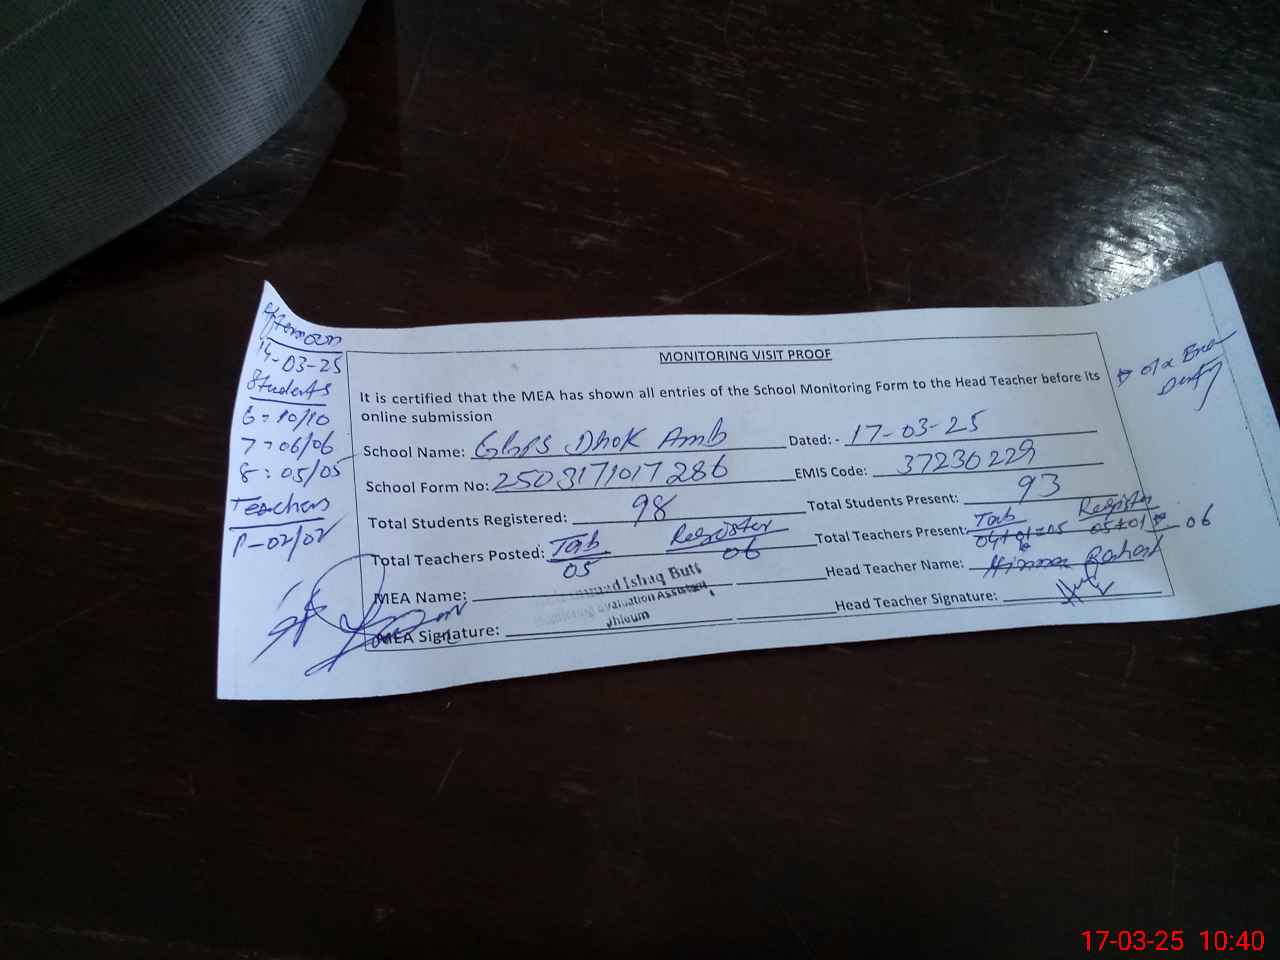 Afternoon
14-03-25
Students
6 = 10/10
7 = 06/06
8 = 05/05
Teachers
P-02/02
MONITORING VISIT PROOF
It is certified that the MEA has shown all entries of the School Monitoring Form to the Head Teacher before its
online submission
School Name: Dhok Amb Dated: - 17-03-25
School Form No: 2503171017286 EMIS Code: 37230229
Total Students Registered: 98 Total Students Present: 93
Total Teachers Posted: Tab 05 Register 06 Total Teachers Present: Tab 04+01=05 Register 05+01 = 06
MEA Name: Ishaq Butt Head Teacher Name:
Evaluation Assistant,
Jhelum
MEA Signature: Head Teacher Signature:
17-03-25 10:40